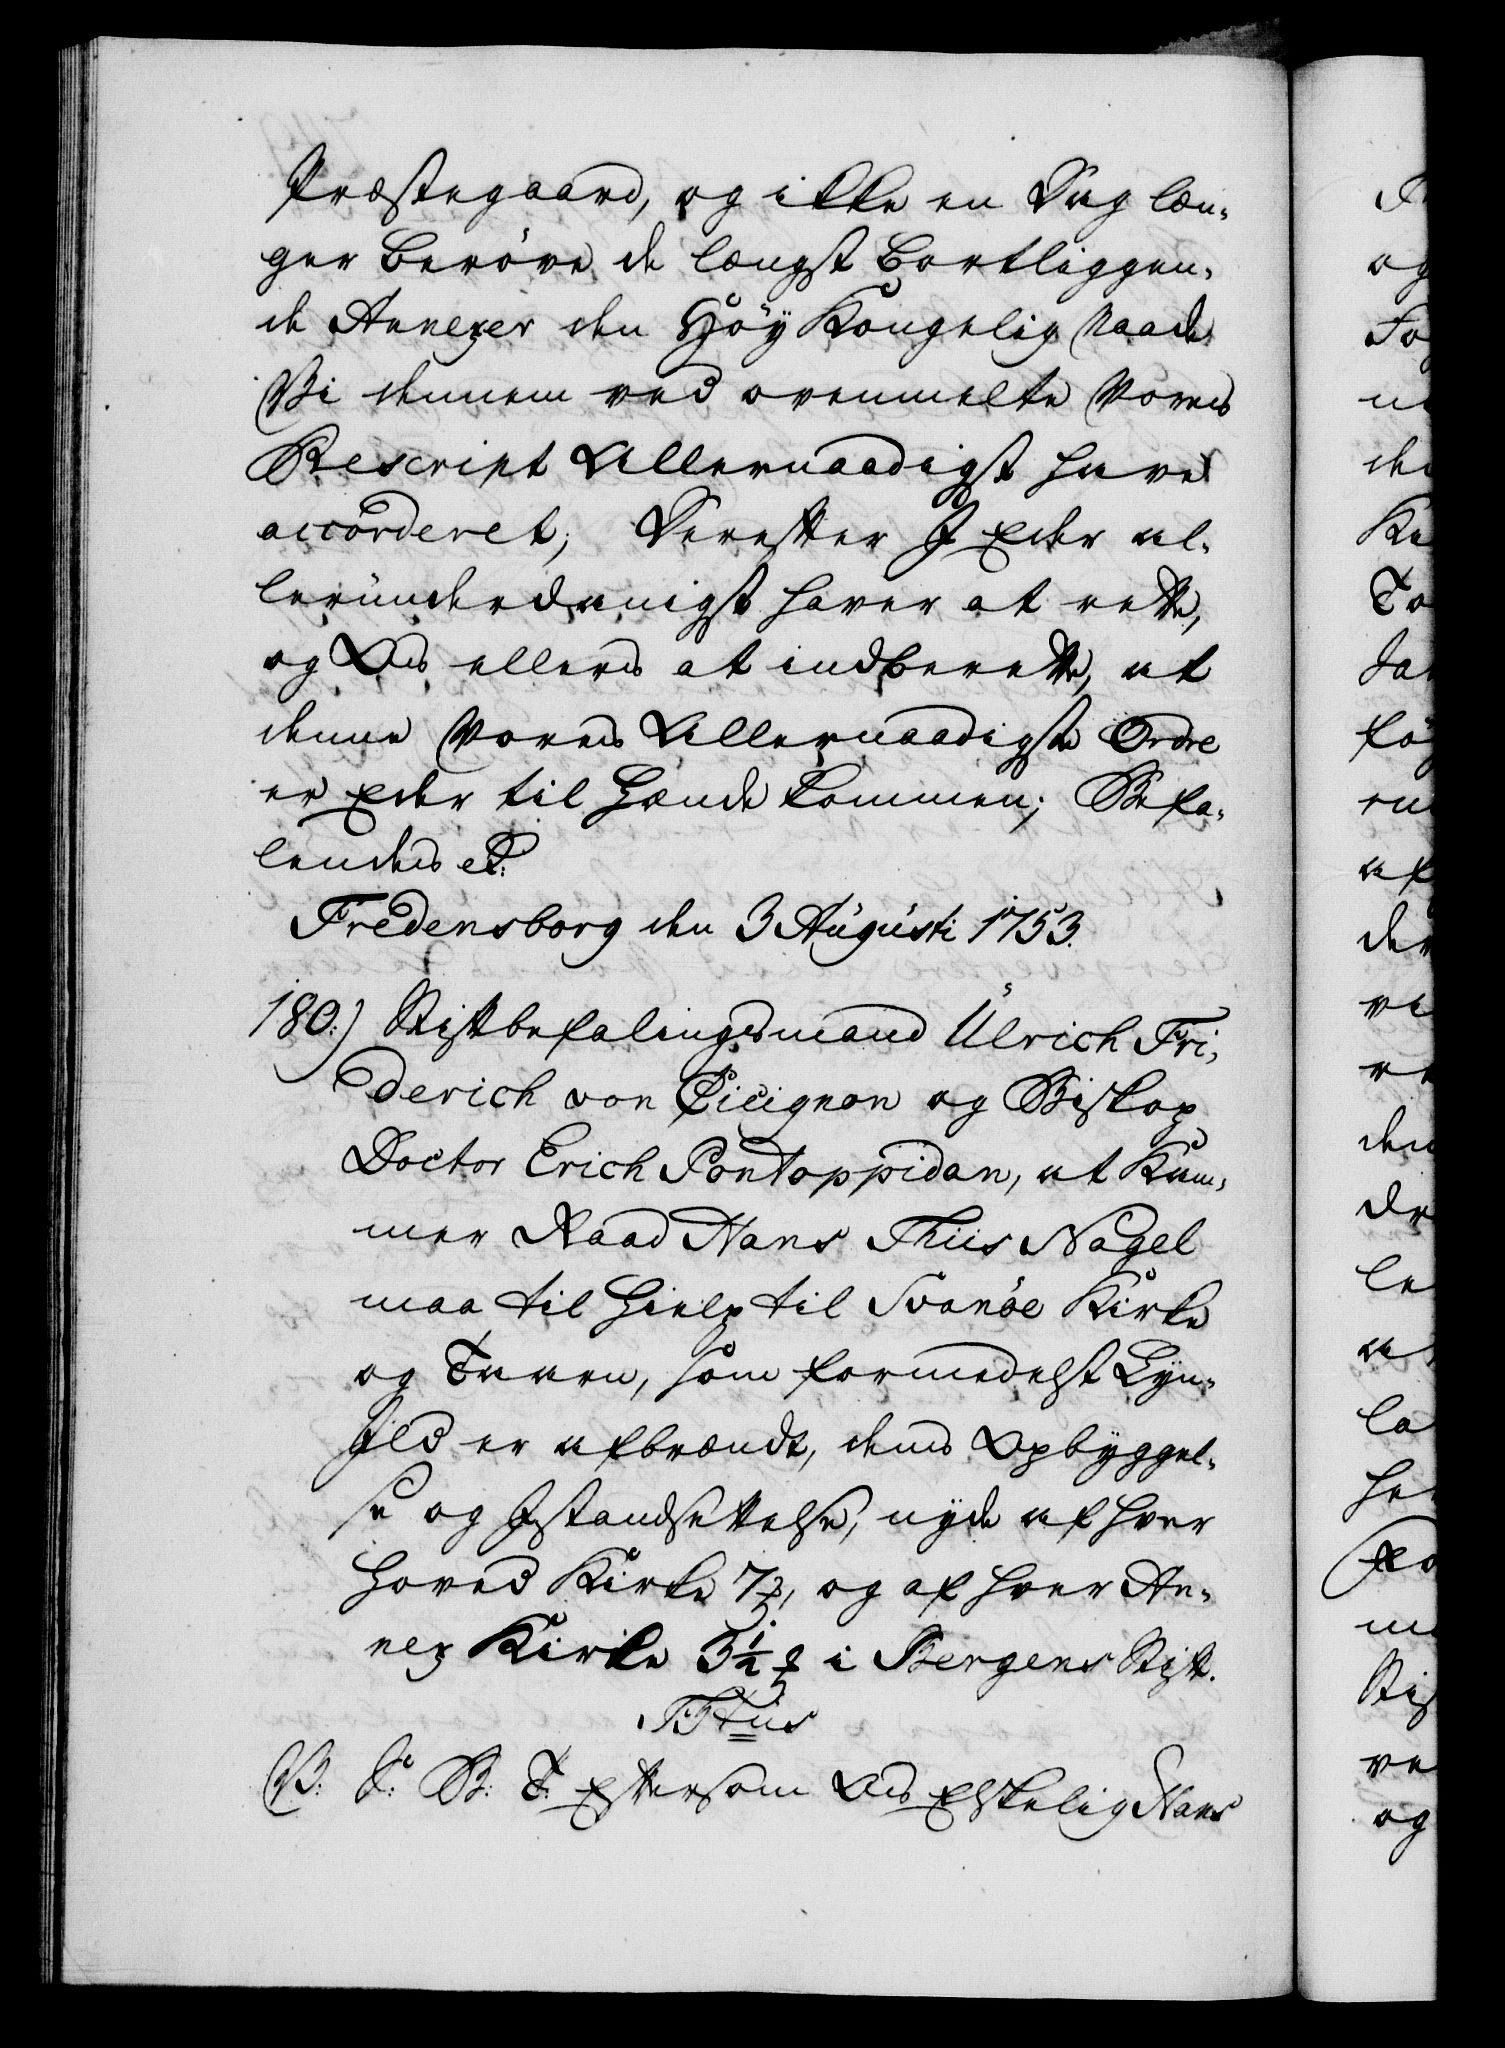 Præstegaard, og ikke en Dag læn-
ger berøve de længst bortliggen-
de Annexer den Høy Kongelig Naade
Vi dennem ved ovenmelte Vores
Rescript Allernaadigst have
accorderet; Derefter I Eder al-
lerunderdanigst haver at rette,
og Os ellers at indberette, at
denne Vores Allernaadigste Ordre
er Eder til Hænde kommen; Befa-
lendes etc:
Fredensborg den 3 Augusti 1753.
180:) Stiftbefalingsmand Ulrich Fri-
derich von Cicignon og Biskop
Doctor Erich Pontoppidan, at Kam-
mer Raad Hans Thiis Nagel
maa til Hielp til Svanöe Kirke
og Taarn, som formedelst Lyn-
Ild er afbrændt, dens Opbyggel-
se og Istandsettelse, nyde af hver
Hoved Kirke 7 ꝭ, og af hver An-
nex Kirke 3½ ꝭ i Bergens Stift.
Titus
V: S: B: T: Eftersom Os Elskelig Hans
og